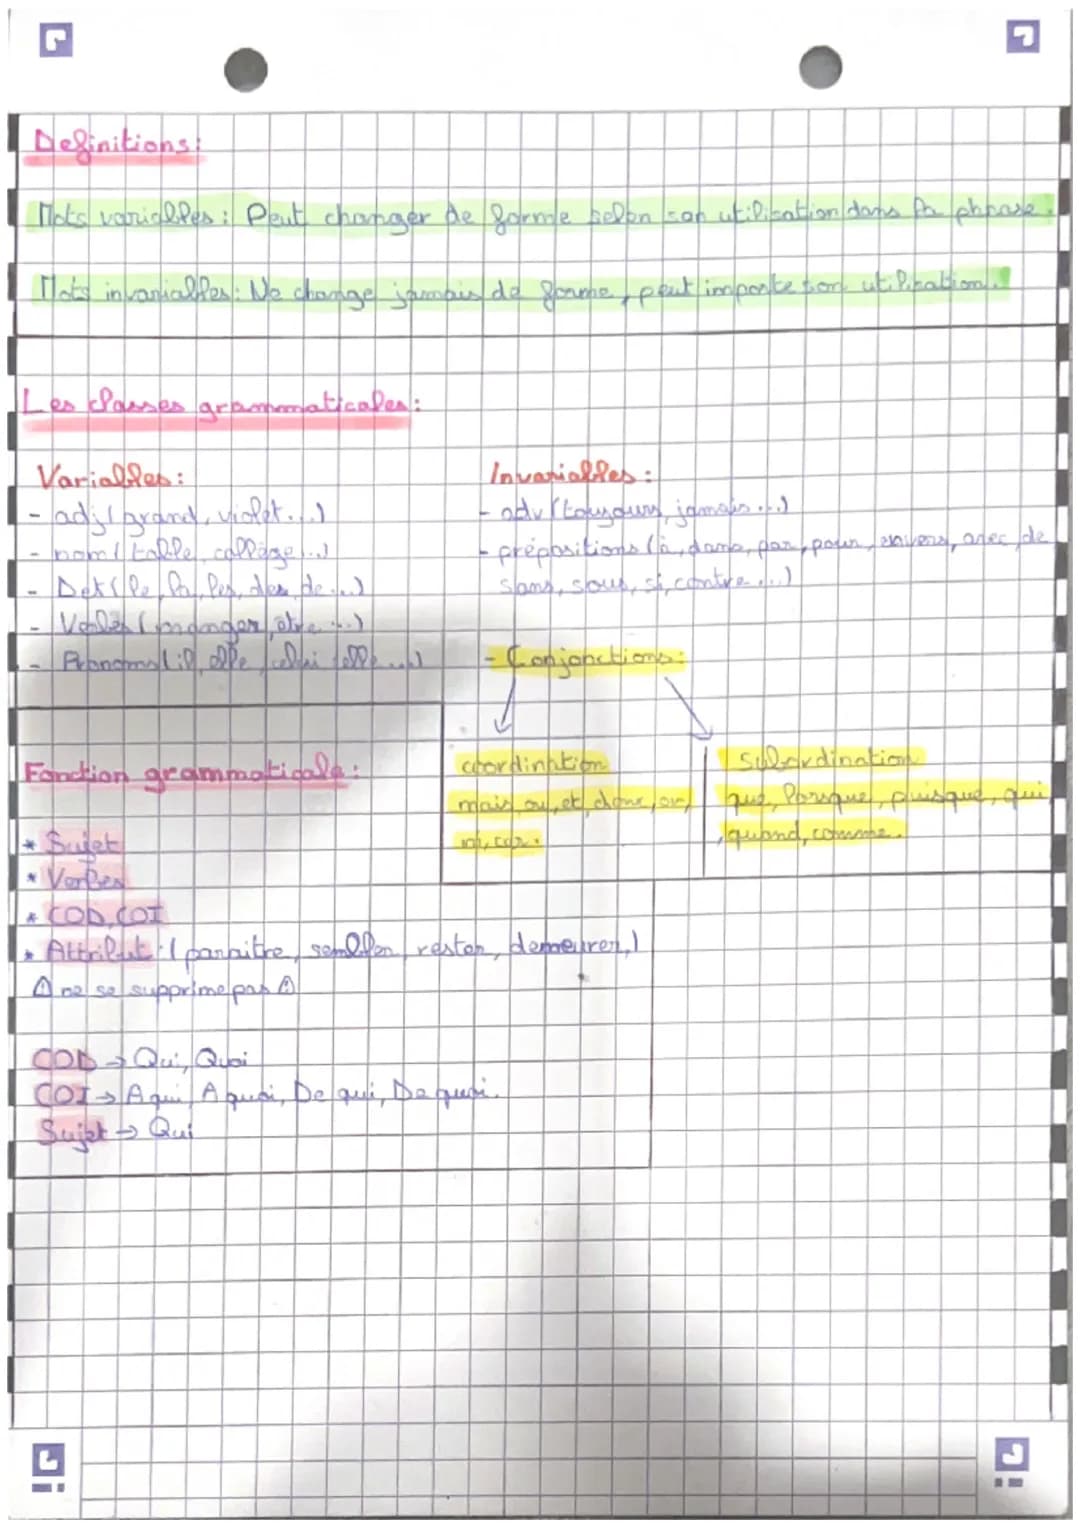 Definitions:
Mots variables: Peut changer de forme selon son utilisation dans la phrase.
Mots invariables: Ne change jamais de forme, peut importe son utilisation.
Les classes grammaticales:
Variables:
- adj (grand, violet...)
- nom (table, collège...)
- Det (le, la, les, des, de...)
- Verbes (manger, être...)
- Pronoms (il, elle, celui, celle...)
Invariables:
- adv (toujours, jamais...)
- prépositions (à, dans, par, pour, envers, avec, de
sans, sous, si, contre...)
- Conjonctions:
coordination
mais, ou, et, donc, or,
ni, car.
Subordination
que, lorsque, puisque, qui,
quand, comme.
Fonction grammaticale:
* Sujet
* Verbes
* COD, COI
* Attribut: (paraitre, sembler, rester, demeurer,)
⚠ ne se supprime pas ⚠
COD → Qui, Quoi
COI → A qui, A quoi, De qui, De quoi.
Sujet → Qui